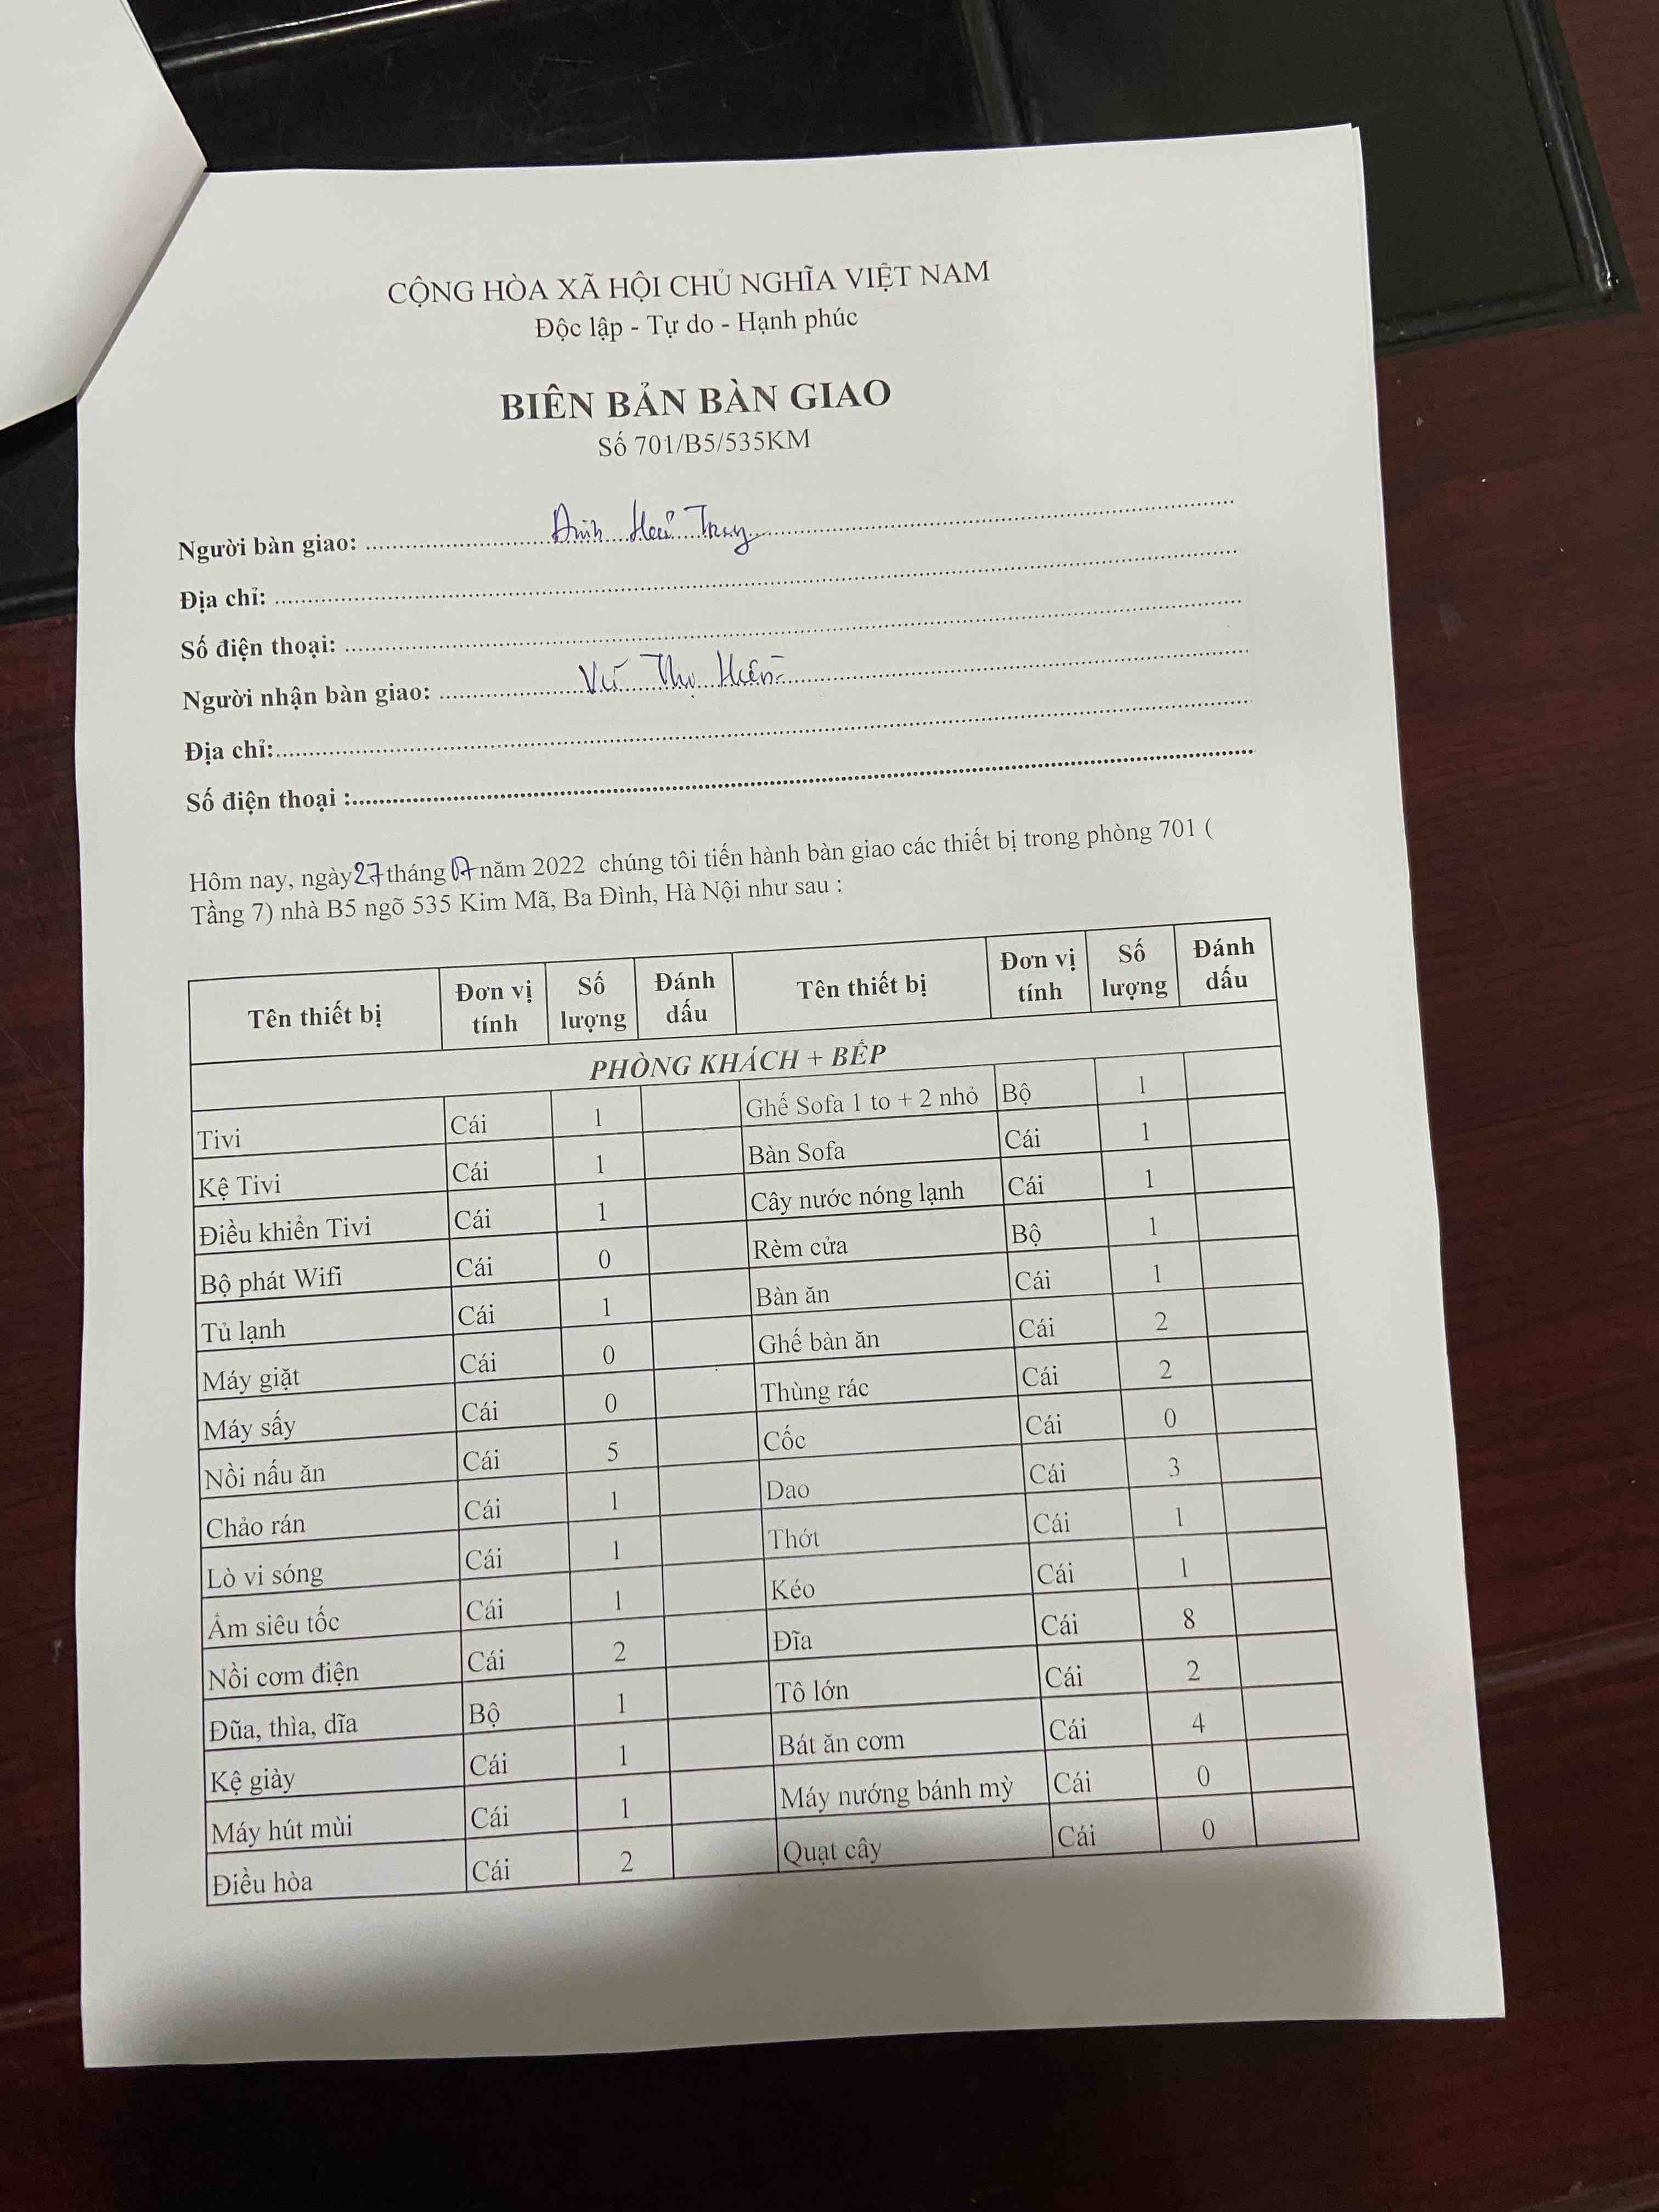 CỘNG HÒA XÃ HỘI CHỦ NGHĨA VIỆT NAM
Độc lập - Tự do - Hạnh phúc
BIÊN BẢN BÀN GIAO
Số 701/B5/535KM
Người bàn giao:
Địa chỉ:
Số điện thoại:
Người nhận bàn giao: Vũ Thị Hiền
Địa chỉ:
Số điện thoại :
Hôm nay, ngày 27 tháng 07 năm 2022 chúng tôi tiến hành bàn giao các thiết bị trong phòng 701 (
Tầng 7) nhà B5 ngõ 535 Kim Mã, Ba Đình, Hà Nội như sau :
Tên thiết bị Đơn vị tính Số lượng Đánh dấu Tên thiết bị Đơn vị tính Số lượng Đánh dấu
PHÒNG KHÁCH + BẾP
Tivi Cái 1 Ghế Sofa 1 to + 2 nhỏ Bộ 1
Kệ Tivi Cái 1 Bàn Sofa Cái 1
Điều khiển Tivi Cái 1 Cây nước nóng lạnh Cái 1
Bộ phát Wifi Cái 0 Rèm cửa Bộ 1
Tủ lạnh Cái 1 Bàn ăn Cái 1
Máy giặt Cái 0 Ghế bàn ăn Cái 2
Máy sấy Cái 0 Thùng rác Cái 2
Nồi nấu ăn Cái 5 Cốc Cái 0
Chảo rán Cái 1 Dao Cái 3
Lò vi sóng Cái 1 Thớt Cái 1
Ấm siêu tốc Cái 1 Kéo Cái 1
Nồi cơm điện Cái 2 Đĩa Cái 8
Đũa, thìa, dĩa Bộ 1 Tô lớn Cái 2
Kệ giày Cái 1 Bát ăn cơm Cái 4
Máy hút mùi Cái 1 Máy nướng bánh mỳ Cái 0
Điều hòa Cái 2 Quạt cây Cái 0